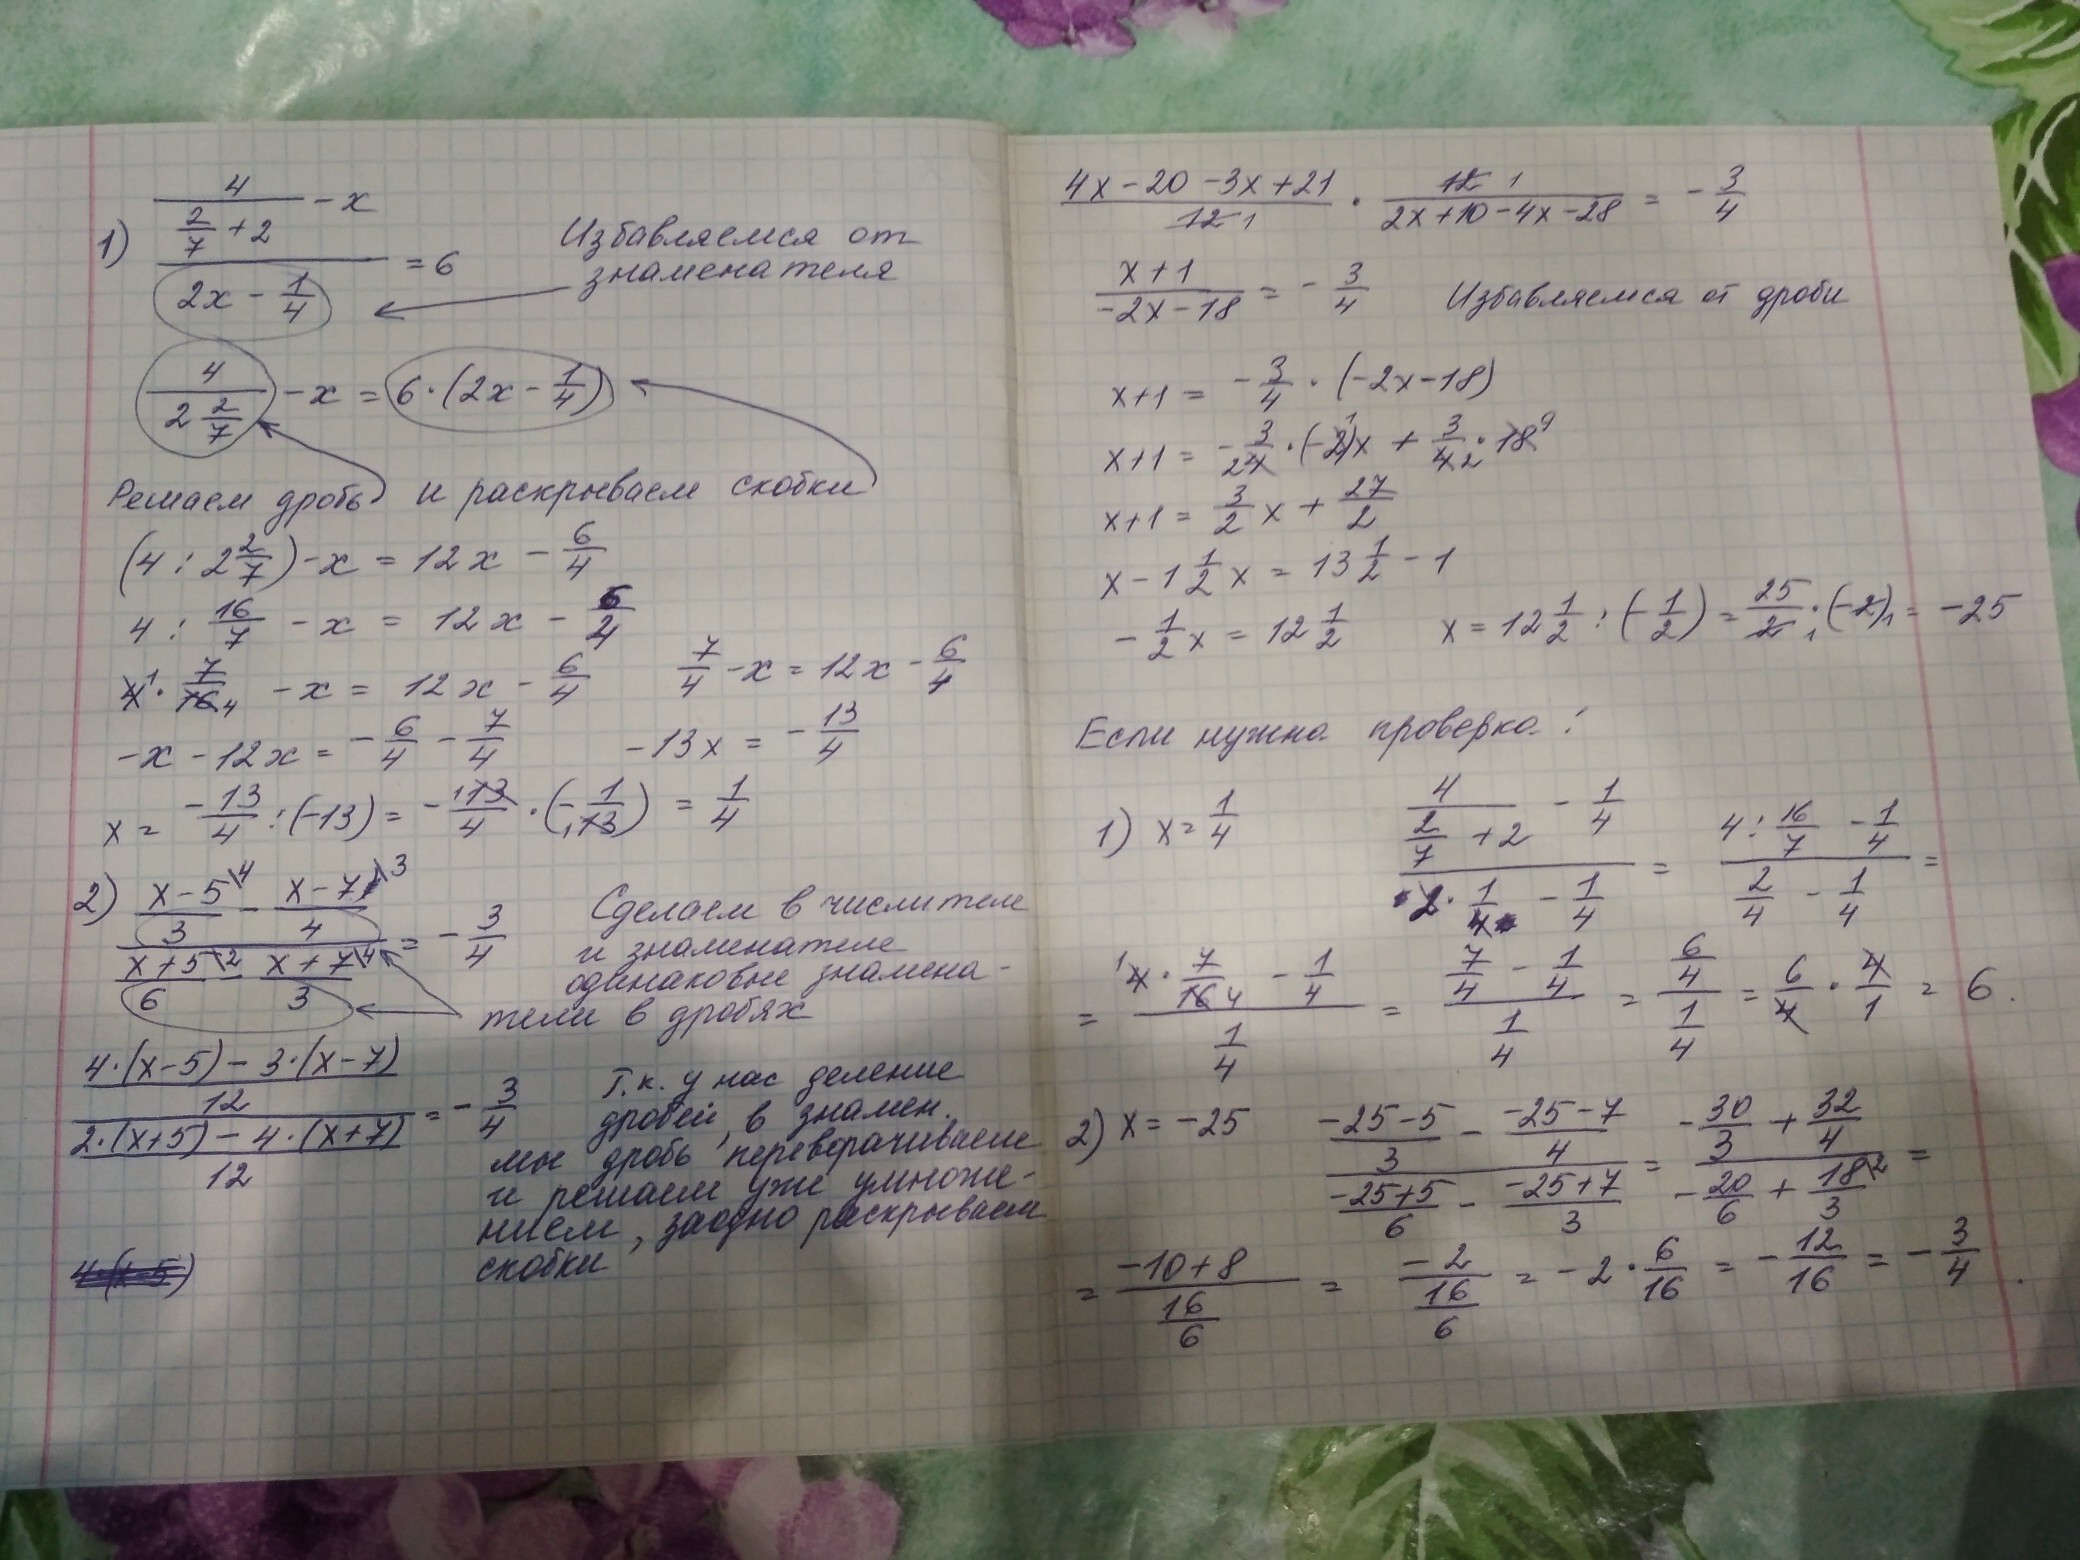 1) (4/(2/7 + 2) - x)/(2x - 1/4) = 6
Избавляемся от
знаменателя
4/(2 2/7) - x = 6·(2x - 1/4)
Решаем дробь и раскрываем скобки
(4 : 2 2/7) - x = 12x - 6/4
4 : 16/7 - x = 12x - 6/4
4 1 · 7/16 4 - x = 12x - 6/4    7/4 - x = 12x - 6/4
-x - 12x = - 6/4 - 7/4    -13x = - 13/4
x = - 13/4 : (-13) = - 1 13/4 · (- 1/1 13) = 1/4
2) ((x-5)/3 \4 - (x-7)/4 \3)/((x+5)/6 \2 - (x+7)/3 \4) = - 3/4
Сделаем в числителе
и знаменателе
одинаковые знамена-
тели в дробях
((4·(x-5) - 3·(x-7))/12)/((2·(x+5) - 4·(x+7))/12) = - 3/4
Т.к. у нас деление
дробей, в знамен.
мы дробь переворачиваем
и решаем уже умноже-
нием, заодно раскрываем
скобки
4·(x-5)
(4x - 20 - 3x + 21)/12 1 · 12 1/(2x + 10 - 4x - 28) = - 3/4
(x+1)/(-2x-18) = - 3/4    Избавляемся от дроби
x+1 = - 3/4 · (-2x-18)
x+1 = - 3/2 4 · (-2 1)x + 3/4 2 · 18 9
x+1 = 3/2 x + 27/2
x - 1 1/2 x = 13 1/2 - 1
- 1/2 x = 12 1/2    x = 12 1/2 : (- 1/2) = 25/2 1 · (-2) 1 = -25
Если нужна проверка:
1) x = 1/4    (4/(2/7 + 2) - 1/4)/(2 · 1/4 - 1/4) = (4 : 16/7 - 1/4)/(2/4 - 1/4) =
= (1 4 · 7/16 4 - 1/4)/(1/4) = (7/4 - 1/4)/(1/4) = (6/4)/(1/4) = 6/4 · 4/1 = 6.
2) x = -25    ((-25-5)/3 - (-25-7)/4)/((-25+5)/6 - (-25+7)/3) = (- 30/3 + 32/4)/(- 20/6 + 18/3 \2) =
= (-10+8)/(16/6) = -2/(16/6) = -2 · 6/16 = - 12/16 = - 3/4.